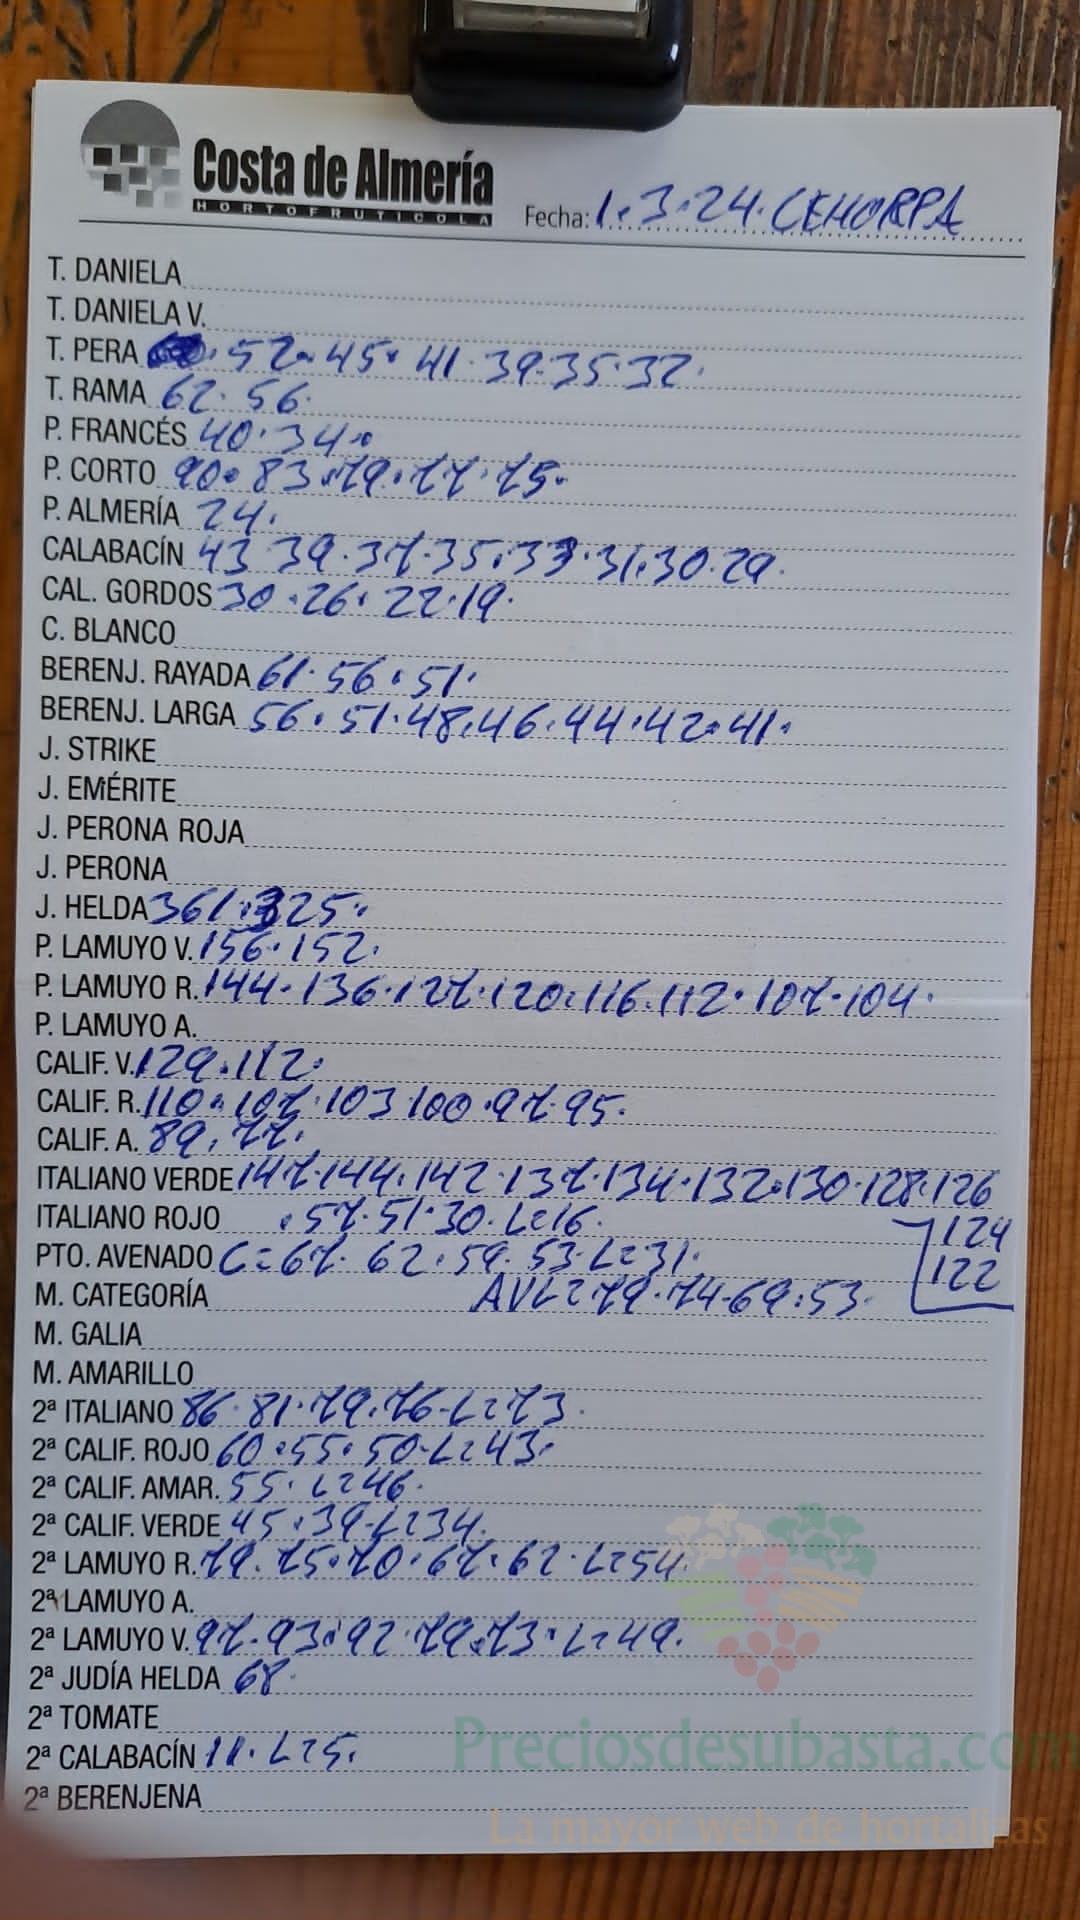 Costa de Almería
HORTOFRUTICOLA
Fecha: 1.3.24. CEHORPA
T. DANIELA
T. DANIELA V.
T. PERA . 52. 45. 41. 39. 35. 32.
T. RAMA 62. 56.
P. FRANCÉS 40. 34.
P. CORTO 90. 83. 79. 77. 75.
P. ALMERÍA 24.
CALABACÍN 43 39. 37. 35. 33. 31. 30. 29.
CAL. GORDOS 30. 26. 22. 19.
C. BLANCO
BERENJ. RAYADA 61. 56. 51.
BERENJ. LARGA 56. 51. 48. 46. 44. 42. 41.
J. STRIKE
J. EMÉRITE
J. PERONA ROJA
J. PERONA
J. HELDA 361. 325.
P. LAMUYO V. 156. 152.
P. LAMUYO R. 144. 136. 127. 120. 116. 112. 107. 104.
P. LAMUYO A.
CALIF. V. 129. 112.
CALIF. R. 110. 107. 103 100. 97. 95.
CALIF. A. 89. 77.
ITALIANO VERDE 147. 144. 142. 137. 134. 132. 130. 128. 126
ITALIANO ROJO . 57. 51. 30. L=16. 124
PTO. AVENADO C=67. 62. 59. 53. L=31. 122
M. CATEGORÍA AVL=79. 74. 69. 53.
M. GALIA
M. AMARILLO
2ª ITALIANO 86. 81. 79. 76. L=73.
2ª CALIF. ROJO 60. 55. 50. L=43.
2ª CALIF. AMAR. 55. L=46.
2ª CALIF. VERDE 45. 39. L=34.
2ª LAMUYO R. 79. 75. 70. 67. 62. L=54.
2ª LAMUYO A.
2ª LAMUYO V. 97. 93. 92. 79. 73. L=49.
2ª JUDÍA HELDA 68.
2ª TOMATE
2ª CALABACÍN 11. L=5.
2ª BERENJENA
Preciosdesubasta.com
La mayor web de hortalizas